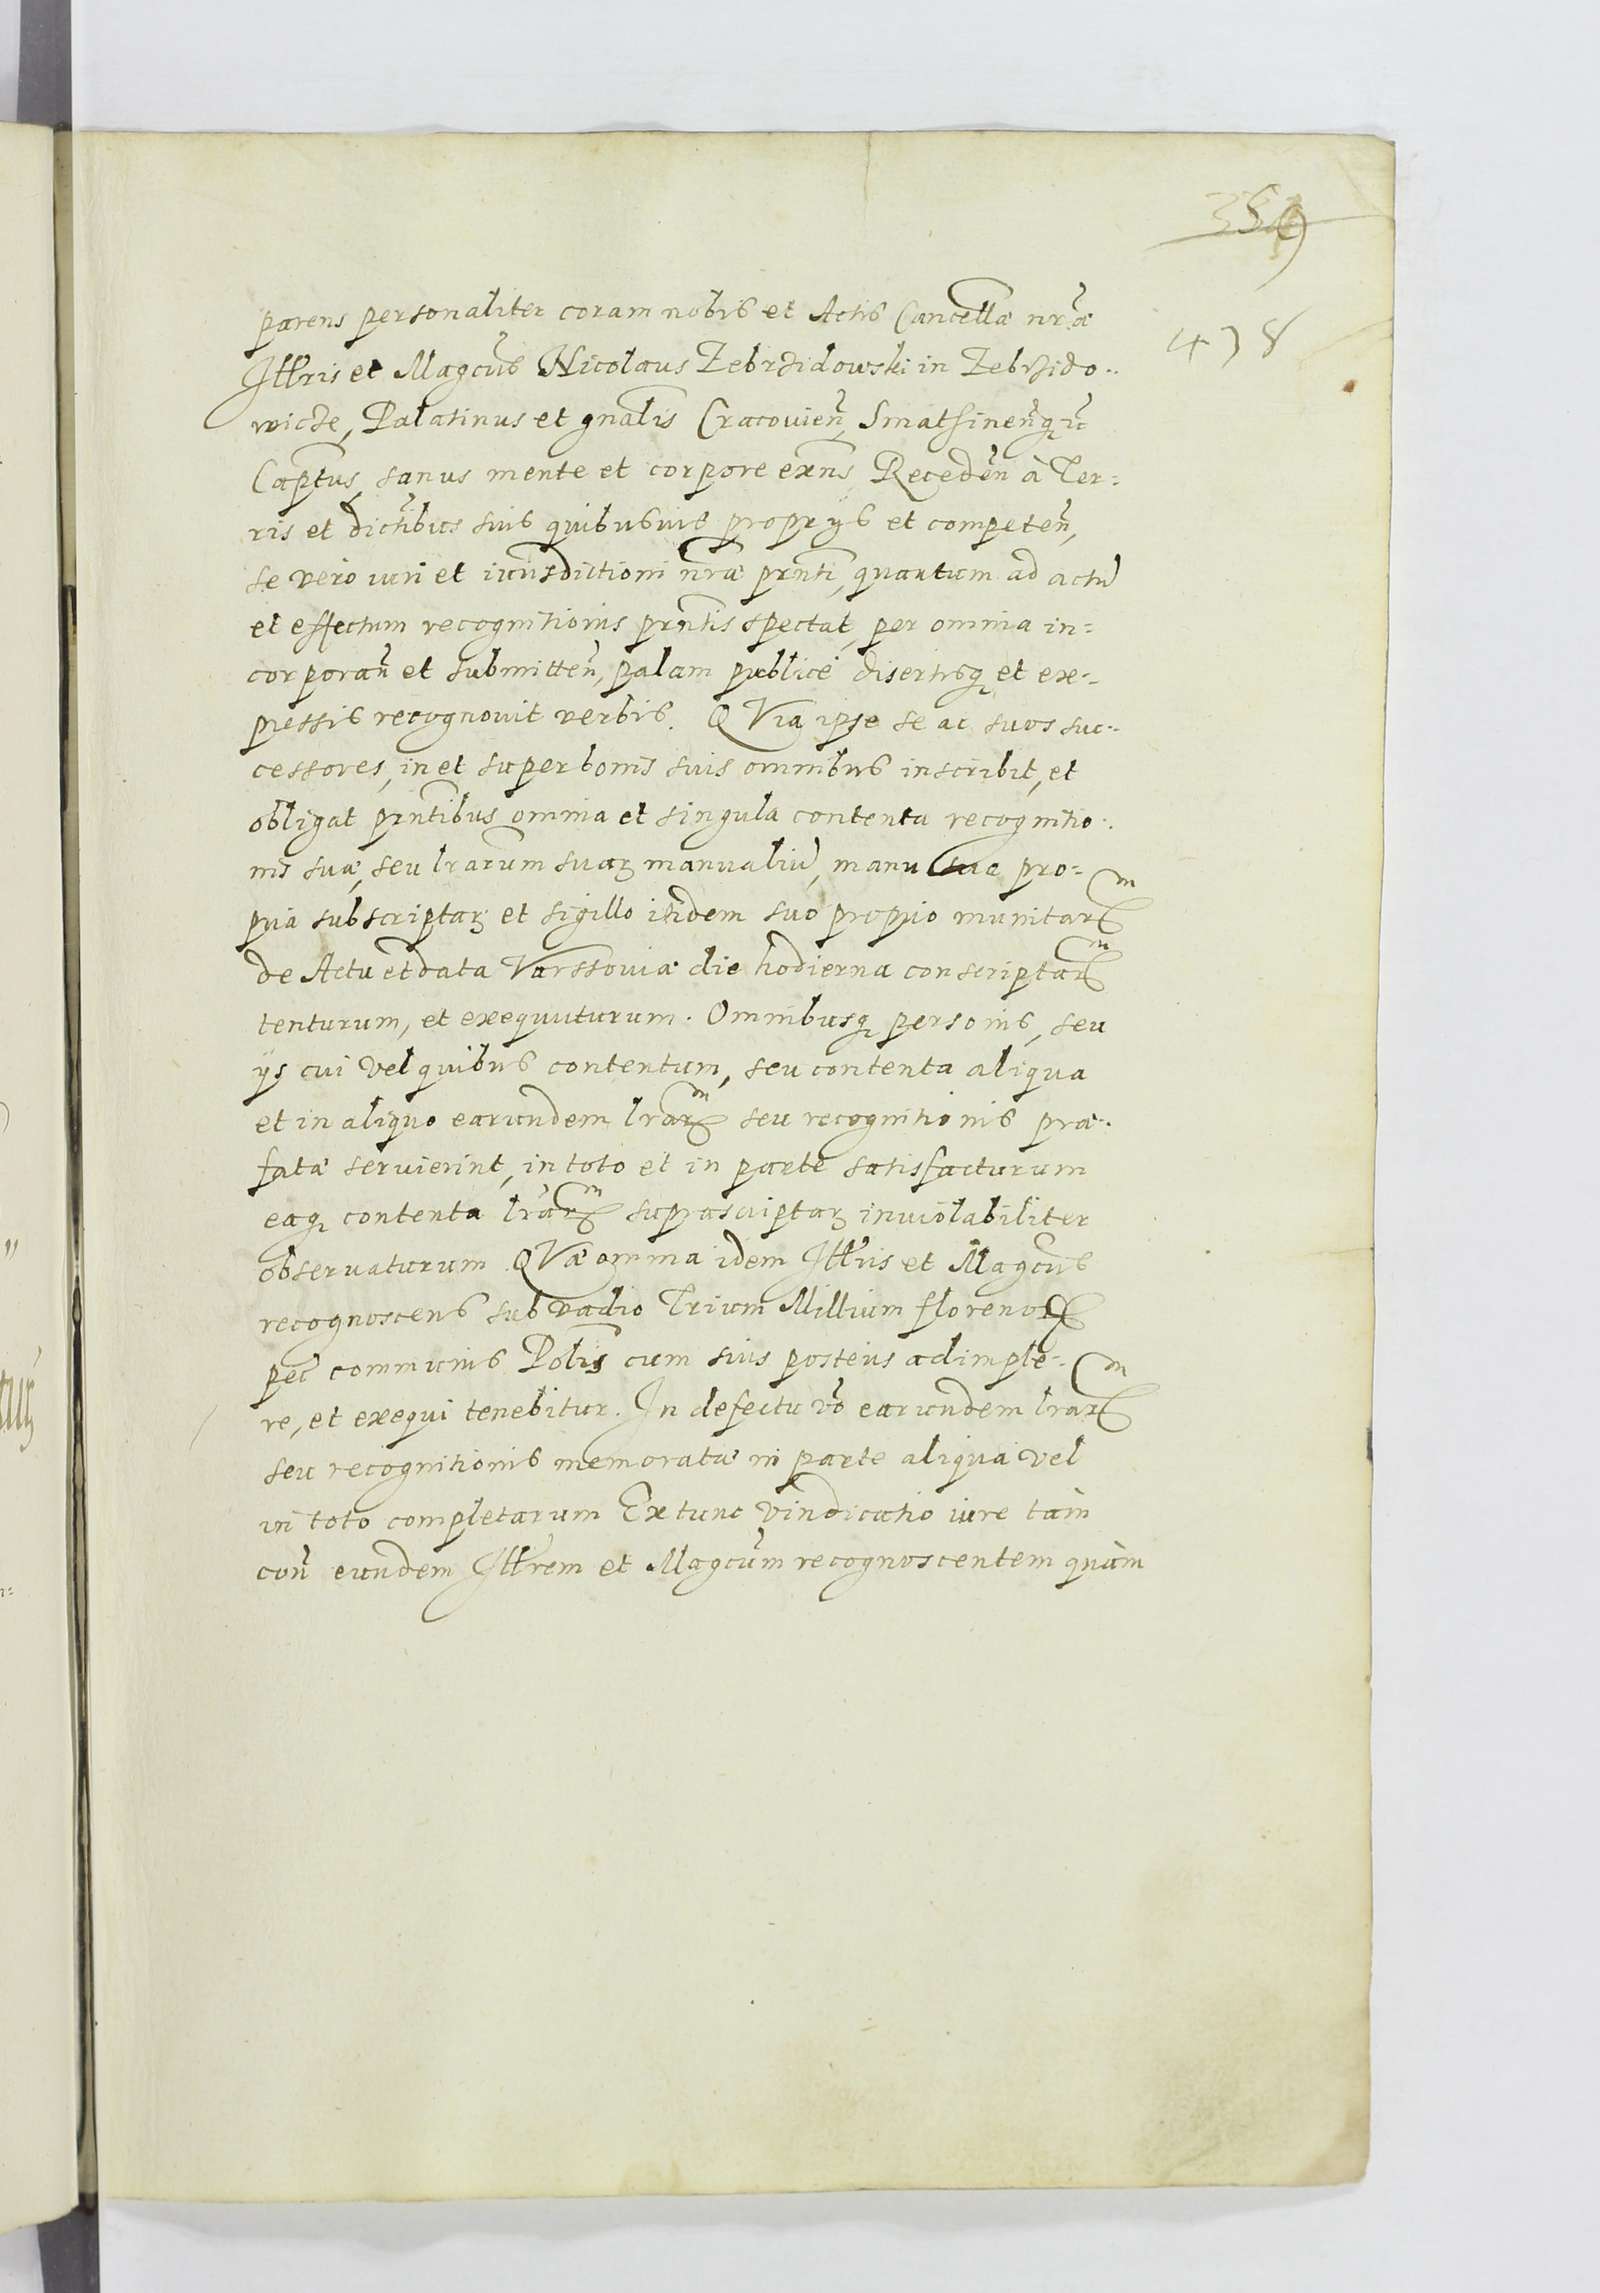 359
478
parens personaliter coram nobis et Actis Cancellæ nræ
Illris et Magcus Nicolaus Zebrzidowski in Zebrzido..
wicze, Palatinus et gnalis Cracouien, Sniatsinenqz
Captus, sanus mente et corpore exns Receden à Ter=
ris et dictibus suis quibusuis proprys et competen,
se vero iuri et iurisdictioni nræ prnti, quantum ad actu
et effectum recognitionis prntis spectat, per omnia in=
corporan et submitten, palam publice disertisqz et ex=
pressis recognouit verbis. QVia ipse se ac suos suc=
cessores, in et super bonis suis omnibus inscribit, et
obligat prntibus omnia et singula contenta recognitio..
nis suæ, seu lrarum suarz manualiu, manu sua pro=
pria subscriptarz et sigillo itidem suo proprio munitarm
de Actu et data Varssouiæ die hodierna conscriptarm
tenturum, et exequuturum. Omnibusqz personis, seu
ys cui vel quibus contentum, seu contenta aliqua
et in aliquo earundem lrarm seu recognitionis præ.
fatæ seruierint, in toto et in parte satisfacturum
eaqz contenta lrarm suprascriptarz inuiolabiliter
obseruaturum QVæ omnia idem Illris et Magcus
recognoscens sub vadio Trium Millium florenorz
pec communis Polis cum suis posteris adimple=
re, et exequi tenebitur. In defectu vo earundem lrarm
seu recognitionis memoratæ in parte aliqua vel
in toto completarum Extunc vindicatio iure tam
con eundem Illrem et Magcum recognoscentem quàm